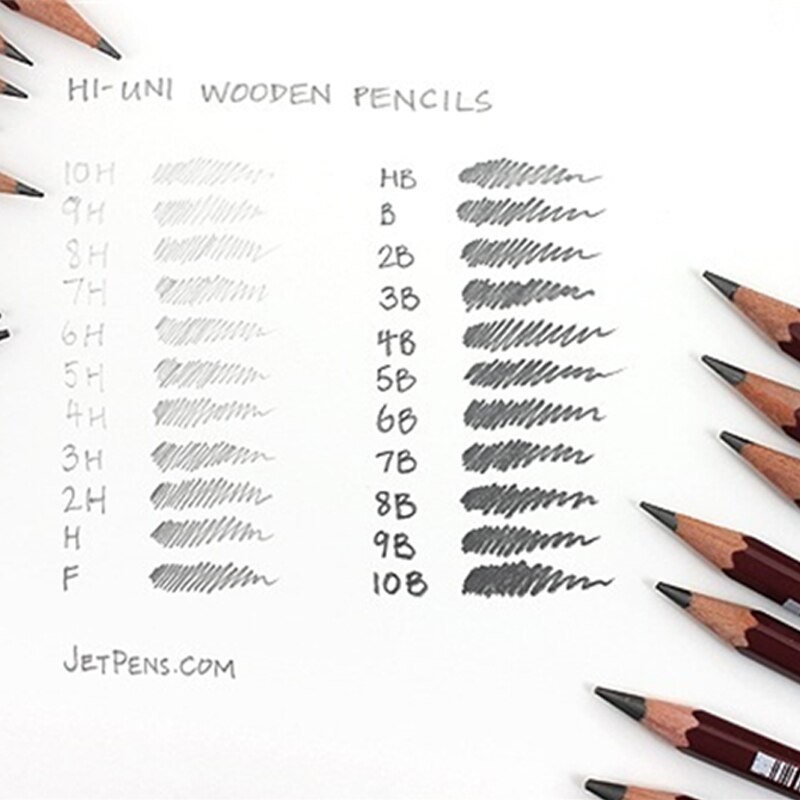 HI-UNI WOODEN PENCILS
10H
9H
8H
7H
6H
5H
4H
3H
2H
H
F
HB
B
2B
3B
4B
5B
6B
7B
8B
9B
10B
JETPENS.COM